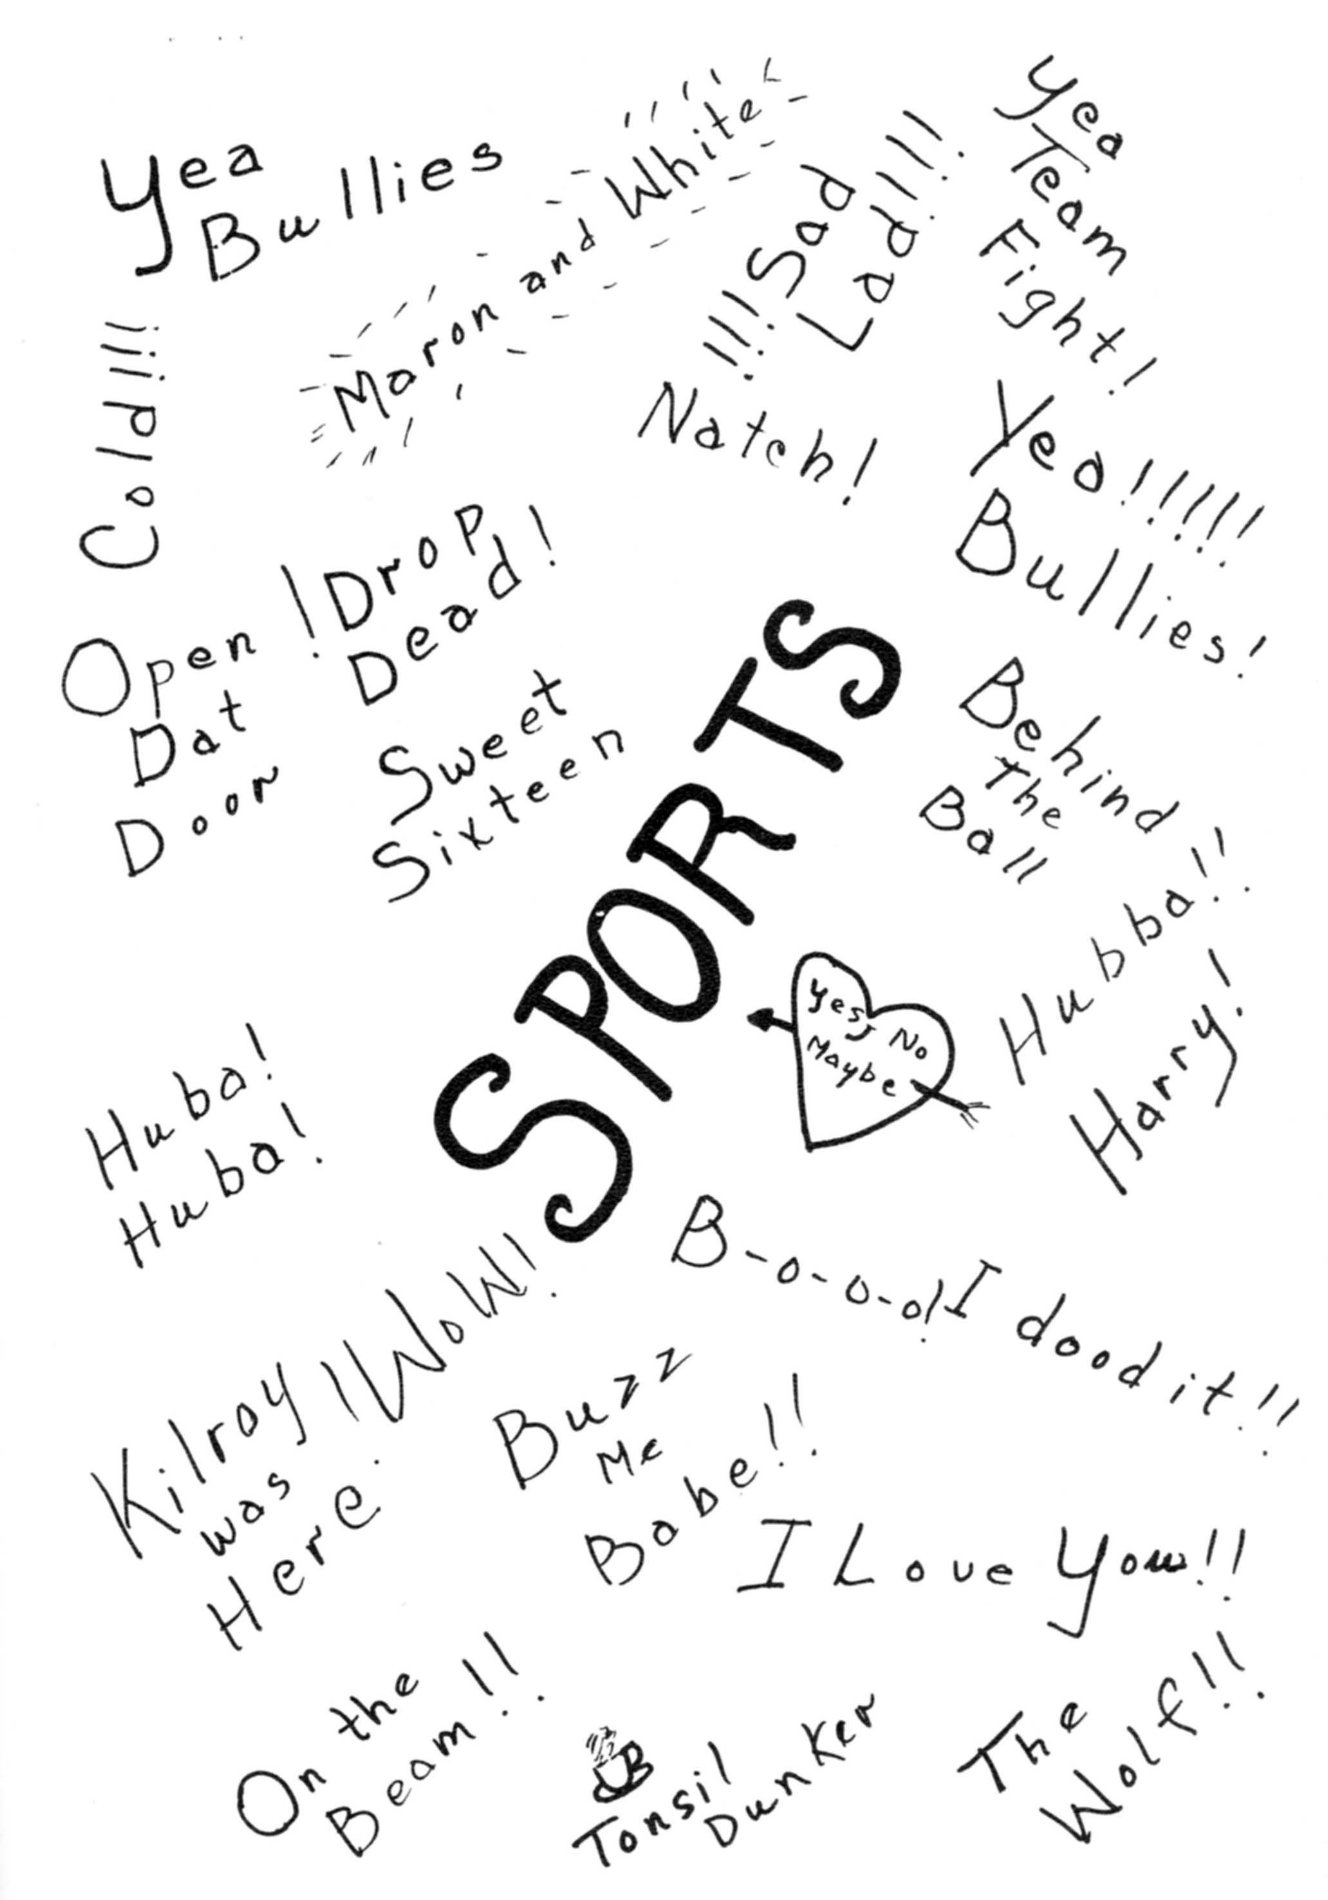 Yea
Bullies
Maron and White
!!! Sad
Lad!!!
Yea
Team
Fight!
Cold!!!
Natch!
Yea!!!!!
Bullies!
! Drop
Dead!
Open
Dat
Door
Sweet
Sixteen
SPORTS
Behind
The
Ball
Hubba!!
Harry!
Yes, No
Maybe
Huba!
Huba!
B-o-o-o!
I dood it!!
! WoW!
Kilroy
was
Here.
Buzz
Me
Babe!!
I Love You!!
On the
Beam!!
Tonsil
Dunker
The
Wolf!!